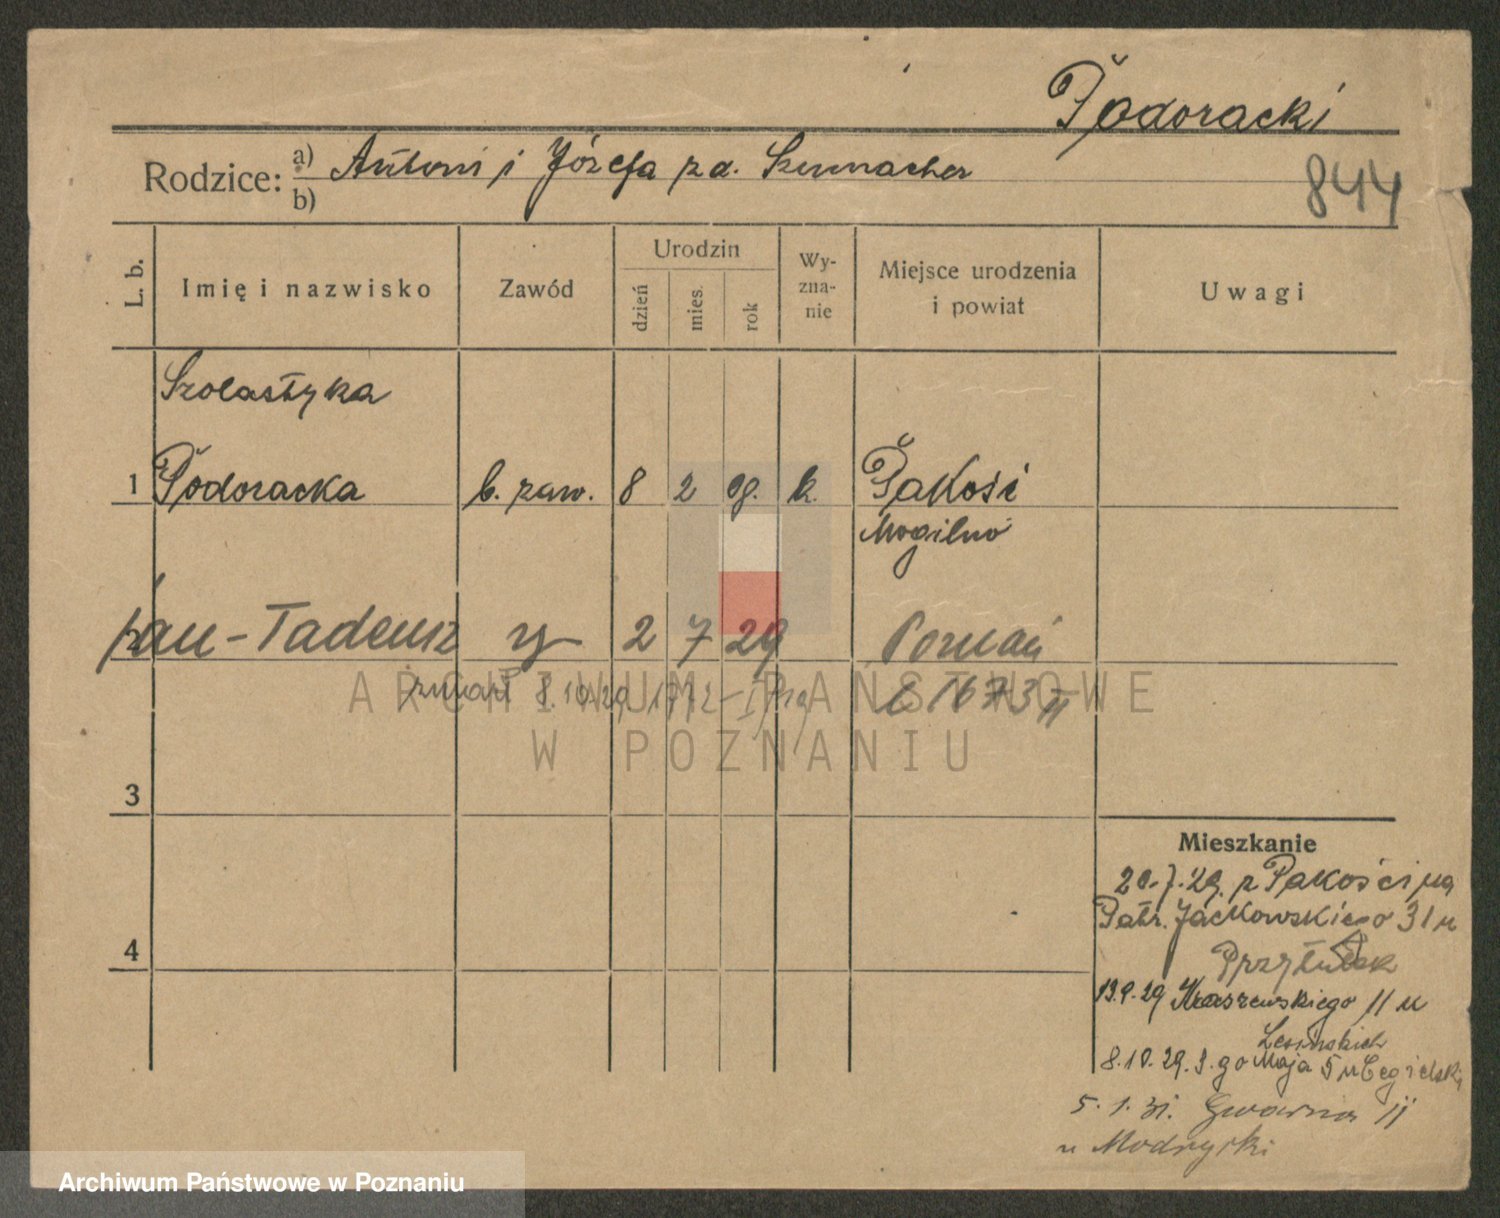 Podoracki
Rodzice: a) Antoni i Józefa z d. Szumacher
b)
844
L. b.
Imię i nazwisko
Zawód
Urodzin
dzień
mies.
rok
Wy-
zna-
nie
Miejsce urodzenia
i powiat
Uwagi
Szolastyka
1 Podoracka b. zaw. 8 2 08. k. Pakość
Mogilno
Jan-Tadeusz 2 7 29 Poznań
zmarł 8.10.29 1772-I/29 L 1673 II
3
4
Mieszkanie
20.7.29. z Pakości na
Patr. Jackowskiego 31 u
Przytułek
13.9.29 Kraszewskiego 11 u
Lesińskich
8.10.29. 3-go Maja 5 u Cegielski
5.1.31. Gwarna 11
u Modrzyski
ARCHIWUM PAŃSTWOWE
W POZNANIU
Archiwum Państwowe w Poznaniu